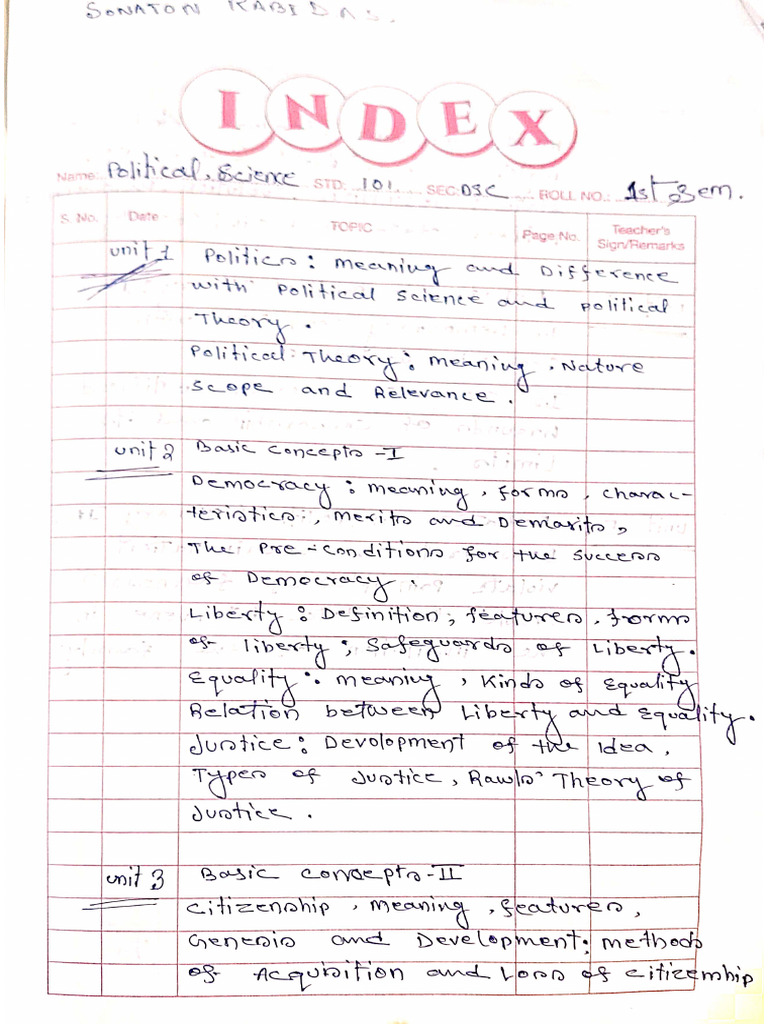 SONATON KABIDAS.
INDEX
Name.. Political, Science STD: 101 SEC: DSC ROLL NO.: 1st Sem.
S. No. Date TOPIC Page No. Teacher's Sign/Remarks
unit 1 Politics: Meaning and Difference
with Political Science and Political
Theory.
Political Theory: Meaning, Nature
Scope and Relevance.
unit 2 Basic Concepts - I
Democracy: Meaning, forms, charac-
teristics, Merits and Demarits,
The Pre-conditions for the success
of Democracy.
Liberty: Definition, features, forms
of liberty; Safeguards of Liberty.
Equality: Meaning, Kinds of Equality
Relation between Liberty and Equality.
Justice: Devolopment of the Idea,
Types of Justice, Rawls' Theory of
Justice.
unit 3 Basic Concepts - II
Citizenship, Meaning, features,
Genesis and Development; Methods
of Acquisition and Loss of Citizenship